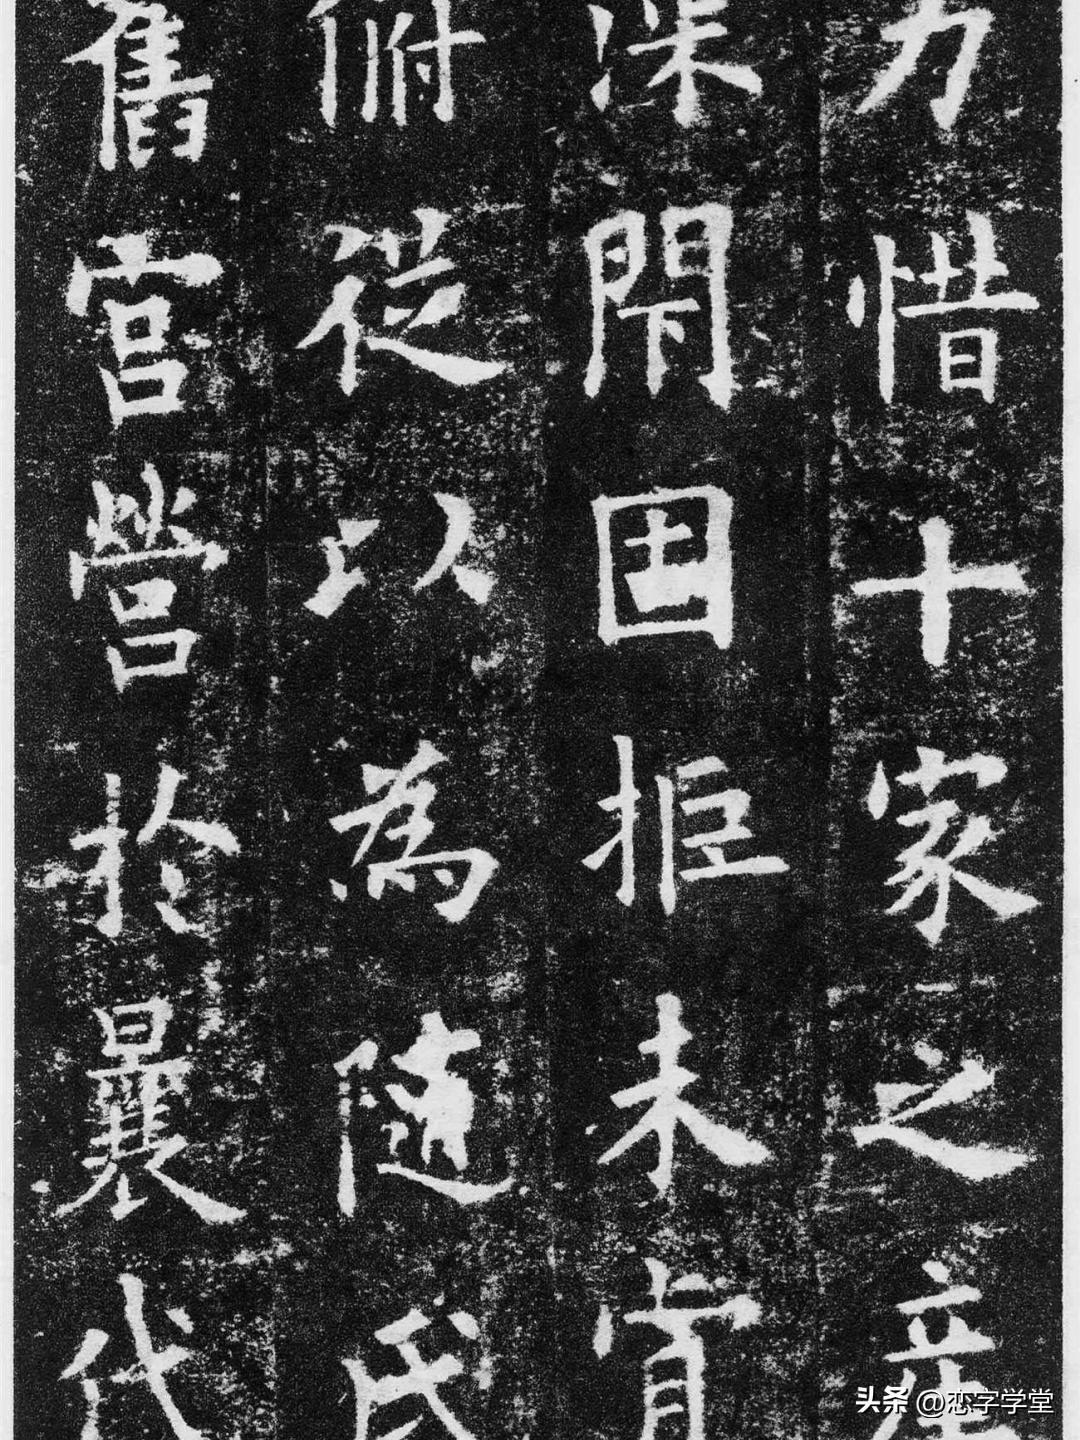 力惜十家之産
深閇固拒未肯
俯從以為随氏
舊宮營於曩代
头条 @恋字学堂